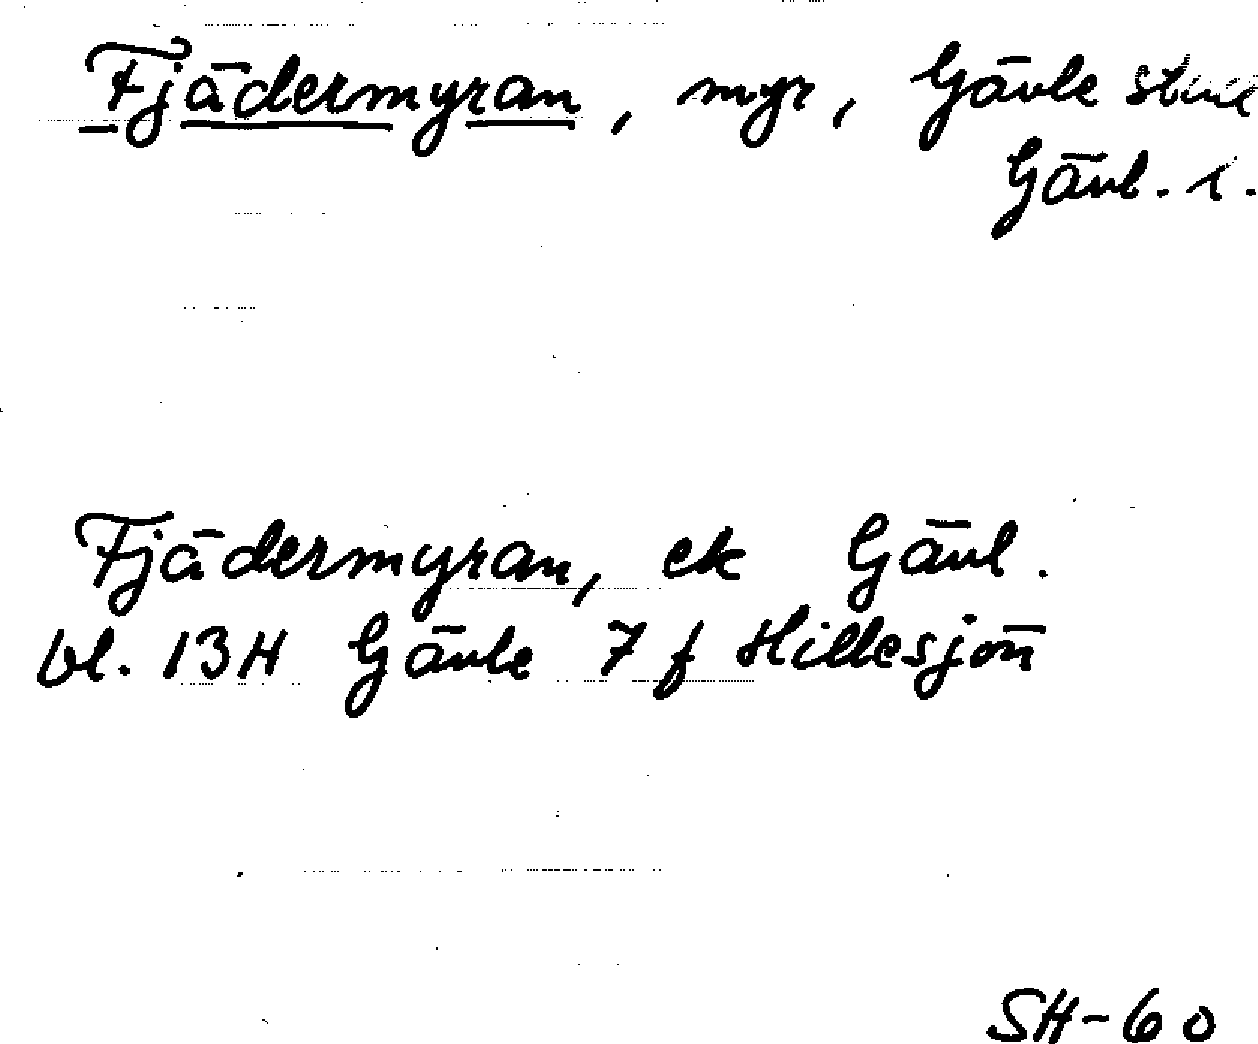 Fjädermyran, myr, Gävle
Gävl. l.
Fjädermyran, ek Gävl.
bl. 13H Gävle 7 f Hillesjön
SH-60